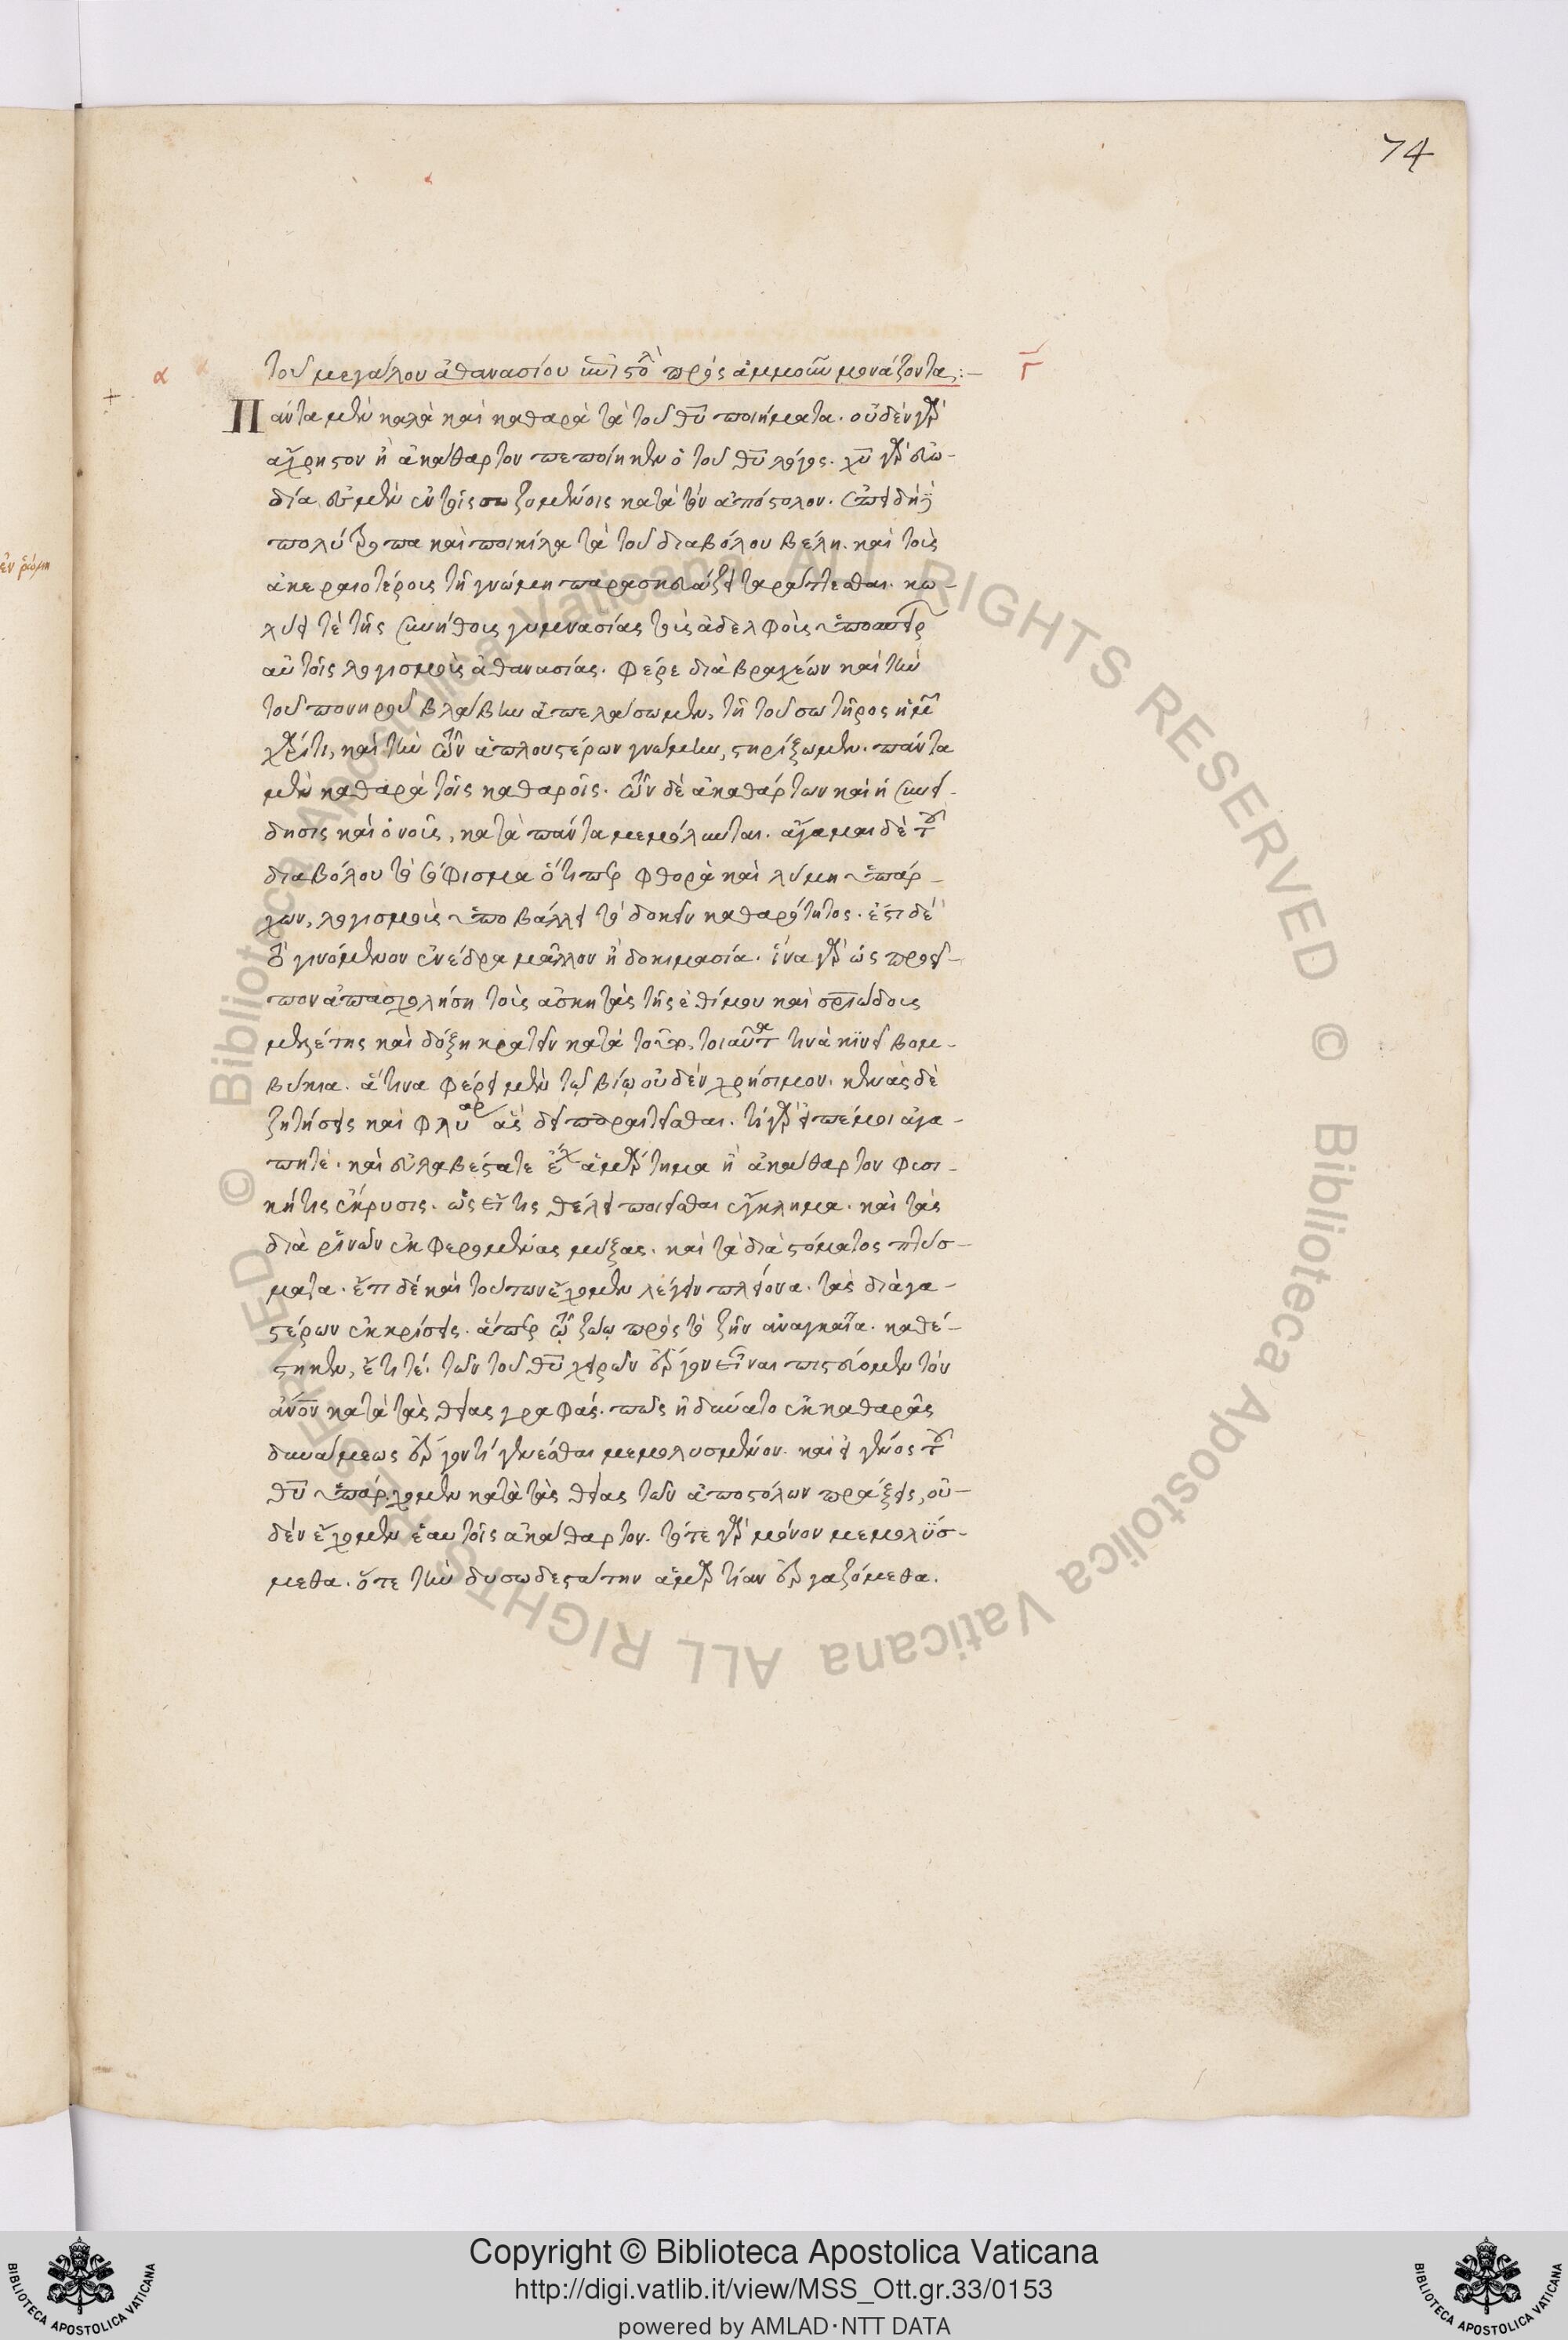 74
τοῦ μεγάλου ἀθανασίου ἐπιστολὴ πρὸς ἀμμοῦν μονάζοντα:—
Πάντα μὲν καλὰ καὶ καθαρὰ τὰ τοῦ θυ ποιήματα. οὐδὲν γὰρ
ἄχρηστον ἢ ἀκάθαρτον πεποίηκεν ὁ τοῦ θυ λόγος. χυ γὰρ εὐω-
δία ἐσμὲν ἐν τοῖς σωζομένοις κατὰ τὸν ἀπόστολον. ἐπειδὴ δὲ
πολύτροπα καὶ ποικίλα τὰ τοῦ διαβόλου βέλη. καὶ τοὺς
ἀκεραιοτέρους τῇ γνώμῃ παρασκευάζει ταράττεσθαι. κω-
λύει τὲ τῆς συνήθους γυμνασίας τοὺς ἀδελφοὺς ὑποσπείρ
αὐτοῖς λογισμοὺς ἀθανασίας. φέρε διὰ βραχέων καὶ τὴν
τοῦ πονηροῦ βλάβην ἀπελάσωμεν, τῇ τοῦ σωτῆρος ἡμῶν
χάριτι, καὶ τὴν τῶν ἁπλουστέρων γνώμην, στηρίξωμεν. πάντα
μὲν καθαρὰ τοῖς καθαροῖς. τῶν δὲ ἀκαθάρτων καὶ ἡ συνεί-
δησις καὶ ὁ νοῦς, κατὰ πάντα μεμόλυνται. ἄγαμαι δὲ τοῦ
διαβόλου τὸ σόφισμα ὅτιπερ φθορὰ καὶ λύμη ὑπάρ-
χων, λογισμοὺς ὑποβάλλει τὸ δοκεῖν καθαρότητος. ἔστι δὲ
τὸ γινόμενον ἐνέδρα μᾶλλον ἢ δοκιμασία. ἵνα γὰρ ὡς προεῖ-
πον ἀπασχολήσῃ τοὺς ἀσκητὰς τῆς ἐθίμου καὶ σριώδους
μελέτης καὶ δόξῃ κρατεῖν κατὰ τοῦτο, τοιαῦτα τινὰ κινεῖ βομ-
βύκια. ἅτινα φέρει μὲν τῷ βίῳ οὐδὲν χρήσιμον. κενὰς δὲ
ζητήσεις καὶ φλυαρίας ἃς δεῖ παραιτεῖσθαι. τί γὰρ εἰπέ μοι ἀγα-
πητὲ. καὶ εὐλαβέστατε ἔχει ἁμάρτημα ἢ ἀκάθαρτον φυσι-
κή τις ἔκκρυσις. ὡς εἴ τις θέλει ποιεῖσθαι ἔγκλημα. καὶ τὰς
διὰ ῥινῶν ἐκφερομένας μύξας. καὶ τὰ διὰ στόματος πτύσ-
ματα. ἔτι δὲ καὶ τούτων ἔχομεν λέγειν πλείονα. τὰς διὰ γα-
στέρων ἐκκρίσεις. ἅπερ τῷ ζώῳ πρὸς τὸ ζῆν ἀναγκαῖα. καθέ-
στηκεν, ἔτι τέ. τῶν τοῦ θυ χειρῶν ἔργον εἶναι πιστεύομεν τὸν
ἄνον κατὰ τὰς θείας γραφάς. πῶς ἠδύνατο ἐκ καθαρᾶς
δυνάμεως ἔργον τί γενέσθαι μεμολυσμένον. καὶ εἰ γένος τοῦ
θυ ὑπάρχομεν κατὰ τὰς θείας τῶν ἀποστόλων πράξεις, οὐ-
δὲν ἔχομεν ἑαυτοῖς ἀκάθαρτον. τότε γὰρ μόνον μεμολύσ-
μεθα. ὅτε τὴν δυσωδεστάτην ἁμαρτίαν ἐργαζόμεθα.
Copyright © Biblioteca Apostolica Vaticana
http://digi.vatlib.it/view/MSS_Ott.gr.33/0153
powered by AMLAD·NTT DATA